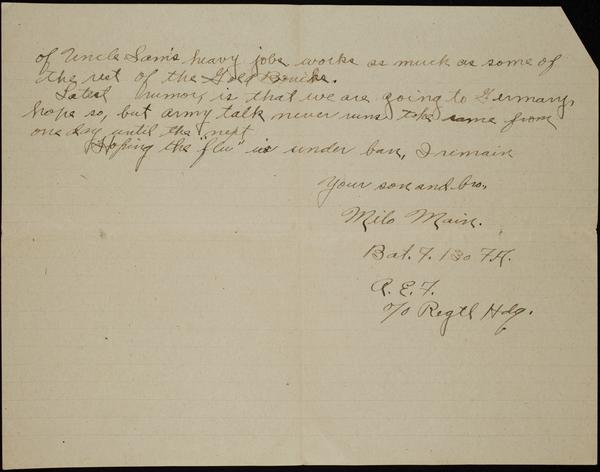 of Uncle Sam's heavy jobs works as much as some of
the rest of the Gold Bricks.
Latest rumor, is that we are going to Germany,
hope so, but army talk never runs the same from
one day until the next
Hoping the "flu" is under ban, I remain
Your son and bro,
Milo Main.
Bat. F. 130 F.A.
A. E. F.
℅ Regtl Hdq.